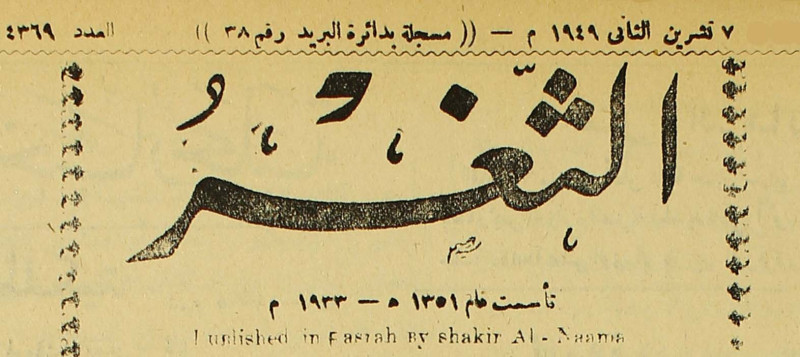 ٧ تشرين الثاني ١٩٤٩ م — (( مسجلة بدائرة البريد رقم ٣٨ )) العدد ٤٣٦٩
الثَّغْرُ
تأسست عام ١٣٥١ ه — ١٩٣٣ م
Puplished in Basrah By shakir Al - Naama